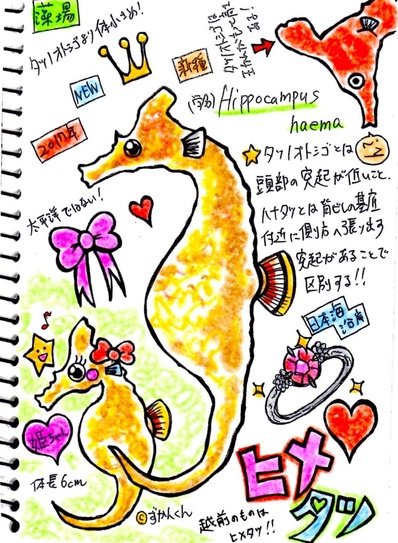 藻場
タツノオトシゴより体小さめ!
新種
NEW
2017年
(学名) Hippocampus
haema
タツノオトシゴとは
頭部の突起が低いこと、
ハナタツとは背ビレの基底
付近に側方へ張り出す
突起があることで
区別する!!
太平洋ではない!
日本海
沿岸
姫ちゃん
体長6cm
©ずかんくん
越前のものは
ヒメタツ!!
ヒメ
タツ